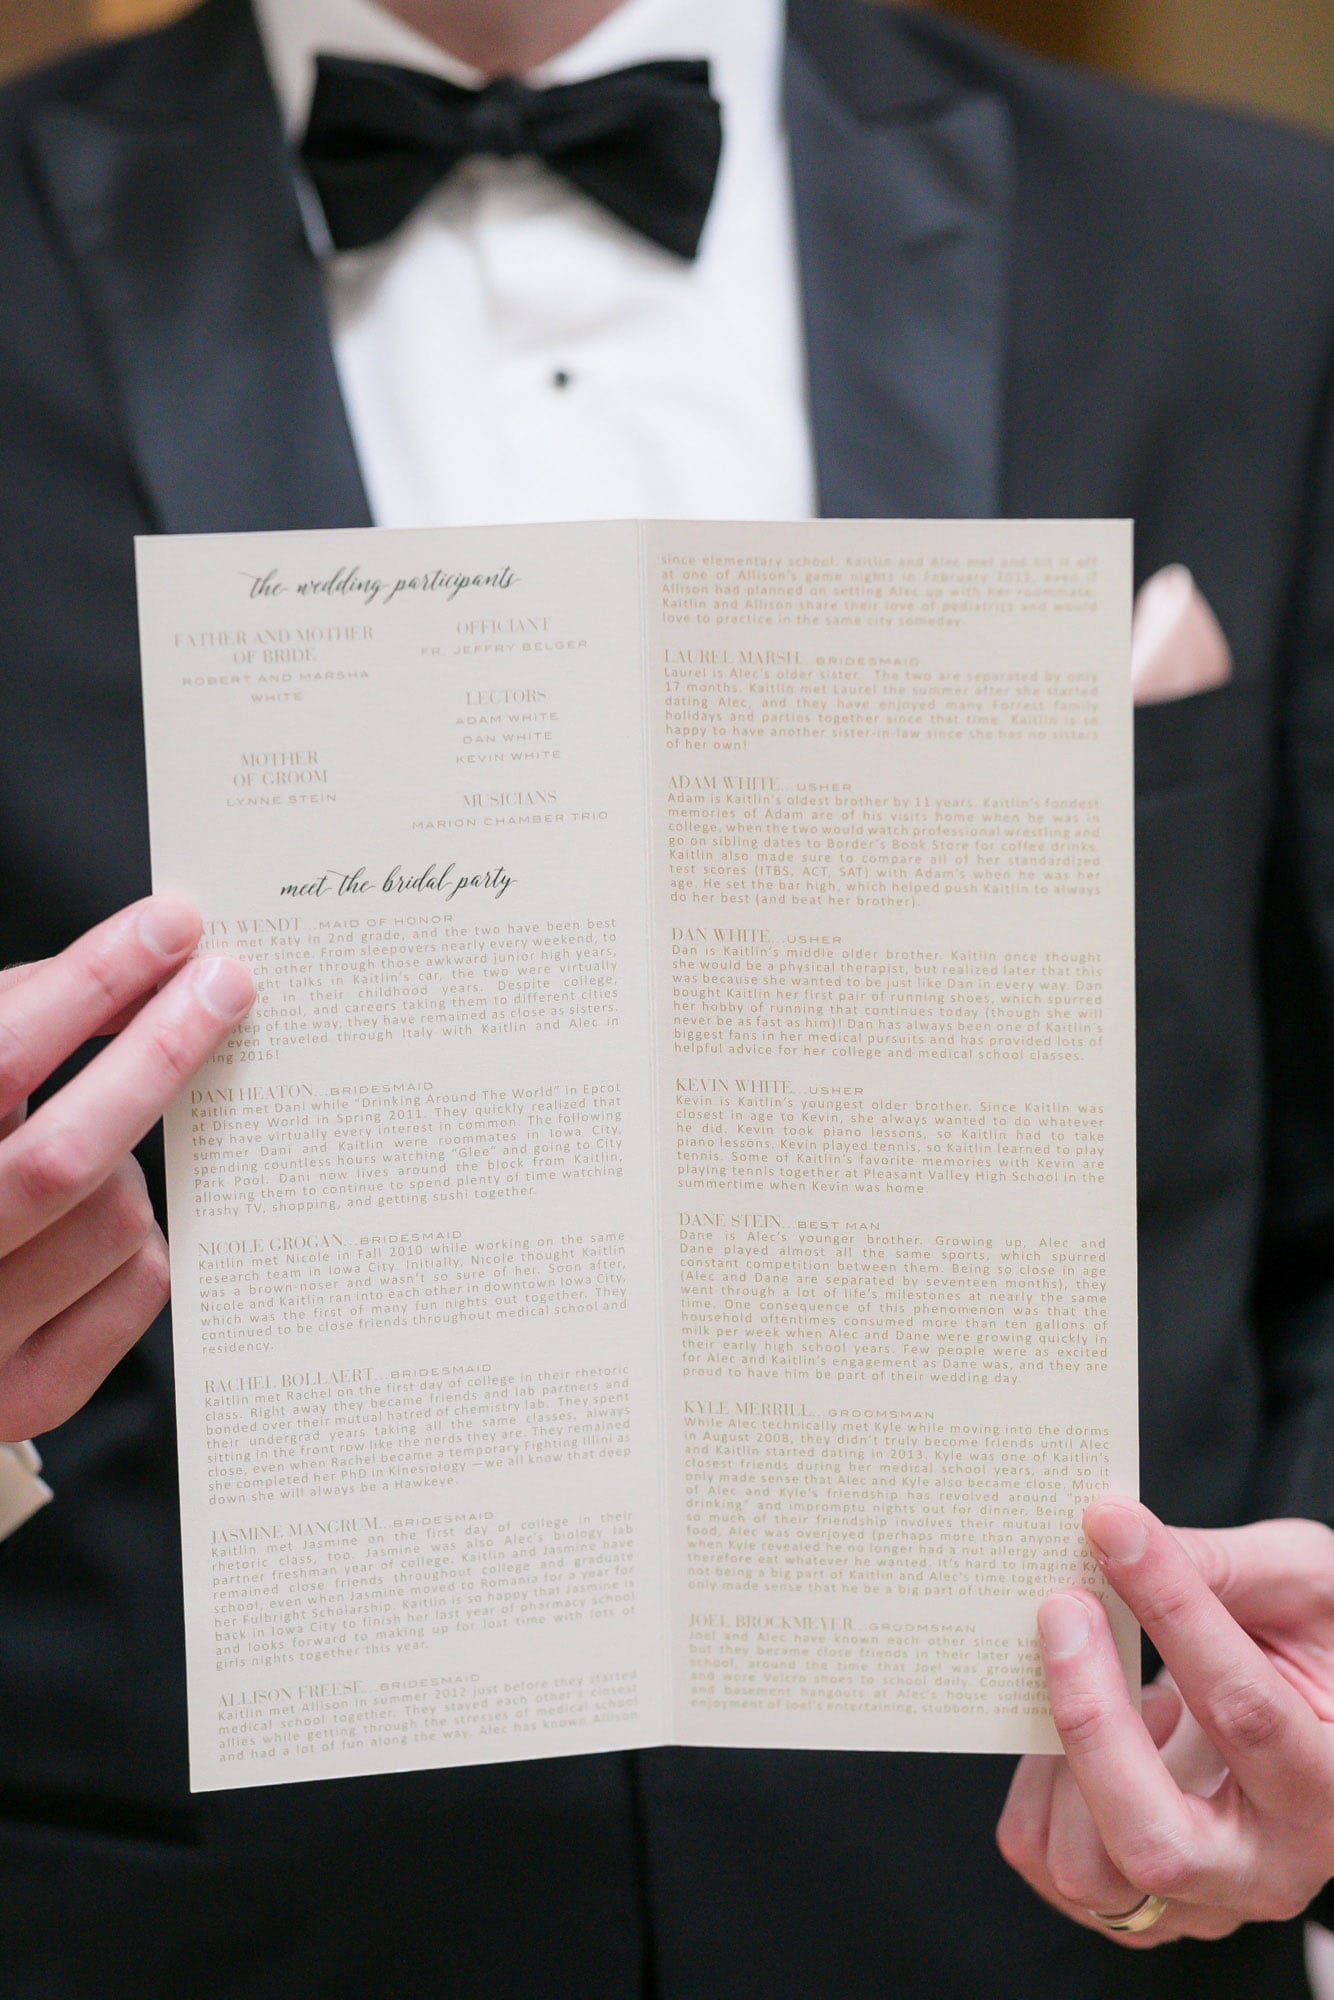 the wedding participants
FATHER AND MOTHER
OF BRIDE
ROBERT AND MARSHA
WHITE
MOTHER
OF GROOM
LYNNE STEIN
OFFICIANT
FR. JEFFRY BELGER
LECTORS
ADAM WHITE
DAN WHITE
KEVIN WHITE
MUSICIANS
MARION CHAMBER TRIO
meet the bridal party
ATY WENDT...MAID OF HONOR
itlin met Katy in 2nd grade, and the two have been best
ever since. From sleepovers nearly every weekend, to
ch other through those awkward junior high years,
ght talks in Kaitlin's car, the two were virtually
le in their childhood years. Despite college,
school, and careers taking them to different cities
tep of the way, they have remained as close as sisters.
even traveled through Italy with Kaitlin and Alec in
ing 2016!
DANI HEATON...BRIDESMAID
Kaitlin met Dani while "Drinking Around The World" in Epcot
at Disney World in Spring 2011. They quickly realized that
they have virtually every interest in common. The following
summer Dani and Kaitlin were roommates in Iowa City,
spending countless hours watching "Glee" and going to City
Park Pool. Dani now lives around the block from Kaitlin,
allowing them to continue to spend plenty of time watching
trashy TV, shopping, and getting sushi together.
NICOLE GROGAN...BRIDESMAID
Kaitlin met Nicole in Fall 2010 while working on the same
research team in Iowa City. Initially, Nicole thought Kaitlin
was a brown-noser and wasn't so sure of her. Soon after,
Nicole and Kaitlin ran into each other in downtown Iowa City,
which was the first of many fun nights out together. They
continued to be close friends throughout medical school and
residency.
RACHEL BOLLAERT...BRIDESMAID
Kaitlin met Rachel on the first day of college in their rhetoric
class. Right away they became friends and lab partners and
bonded over their mutual hatred of chemistry lab. They spent
their undergrad years taking all the same classes, always
sitting in the front row like the nerds they are. They remained
close, even when Rachel became a temporary Fighting Illini as
she completed her PhD in Kinesiology —we all know that deep
down she will always be a Hawkeye.
JASMINE MANGRUM...BRIDESMAID
Kaitlin met Jasmine on the first day of college in their
rhetoric class, too. Jasmine was also Alec's biology lab
partner freshman year of college. Kaitlin and Jasmine have
remained close friends throughout college and graduate
school, even when Jasmine moved to Romania for a year for
her Fulbright Scholarship. Kaitlin is so happy that Jasmine is
back in Iowa City to finish her last year of pharmacy school
and looks forward to making up for lost time with lots of
girls nights together this year.
ALLISON FREESE...BRIDESMAID
Kaitlin met Allison in summer 2012 just before they started
medical school together. They stayed each other's closest
allies while getting through the stresses of medical school
and had a lot of fun along the way. Alec has known Allison
since elementary school. Kaitlin and Alec met and hit it off
at one of Allison's game nights in February 2013, even if
Allison had planned on setting Alec up with her roommate.
Kaitlin and Allison share their love of pediatrics and would
love to practice in the same city someday.
LAUREL MARSH...BRIDESMAID
Laurel is Alec's older sister. The two are separated by only
17 months. Kaitlin met Laurel the summer after she started
dating Alec, and they have enjoyed many Forrest family
holidays and parties together since that time. Kaitlin is so
happy to have another sister-in-law since she has no sisters
of her own!
ADAM WHITE...USHER
Adam is Kaitlin's oldest brother by 11 years. Kaitlin's fondest
memories of Adam are of his visits home when he was in
college, when the two would watch professional wrestling and
go on sibling dates to Border's Book Store for coffee drinks.
Kaitlin also made sure to compare all of her standardized
test scores (ITBS, ACT, SAT) with Adam's when he was her
age. He set the bar high, which helped push Kaitlin to always
do her best (and beat her brother).
DAN WHITE...USHER
Dan is Kaitlin's middle older brother. Kaitlin once thought
she would be a physical therapist, but realized later that this
was because she wanted to be just like Dan in every way. Dan
bought Kaitlin her first pair of running shoes, which spurred
her hobby of running that continues today (though she will
never be as fast as him)! Dan has always been one of Kaitlin's
biggest fans in her medical pursuits and has provided lots of
helpful advice for her college and medical school classes.
KEVIN WHITE...USHER
Kevin is Kaitlin's youngest older brother. Since Kaitlin was
closest in age to Kevin, she always wanted to do whatever
he did. Kevin took piano lessons, so Kaitlin had to take
piano lessons. Kevin played tennis, so Kaitlin learned to play
tennis. Some of Kaitlin's favorite memories with Kevin are
playing tennis together at Pleasant Valley High School in the
summertime when Kevin was home.
DANE STEIN...BEST MAN
Dane is Alec's younger brother. Growing up, Alec and
Dane played almost all the same sports, which spurred
constant competition between them. Being so close in age
(Alec and Dane are separated by seventeen months), they
went through a lot of life's milestones at nearly the same
time. One consequence of this phenomenon was that the
household oftentimes consumed more than ten gallons of
milk per week when Alec and Dane were growing quickly in
their early high school years. Few people were as excited
for Alec and Kaitlin's engagement as Dane was, and they are
proud to have him be part of their wedding day.
KYLE MERRILL...GROOMSMAN
While Alec technically met Kyle while moving into the dorms
in August 2008, they didn't truly become friends until Alec
and Kaitlin started dating in 2013. Kyle was one of Kaitlin's
closest friends during her medical school years, and so it
only made sense that Alec and Kyle also became close. Much
of Alec and Kyle's friendship has revolved around "pati
drinking" and impromptu nights out for dinner. Being
so much of their friendship involves their mutual lov
food, Alec was overjoyed (perhaps more than anyone e
when Kyle revealed he no longer had a nut allergy and cou
therefore eat whatever he wanted. It's hard to imagine Ky
not being a big part of Kaitlin and Alec's time together, so i
only made sense that he be a big part of their wedd
JOEL BROCKMEYER...GROOMSMAN
Joel and Alec have known each other since kin
but they became close friends in their later yea
school, around the time that Joel was growing
and wore Velcro shoes to school daily. Countless
and basement hangouts at Alec's house solidifi
enjoyment of Joel's entertaining, stubborn, and una